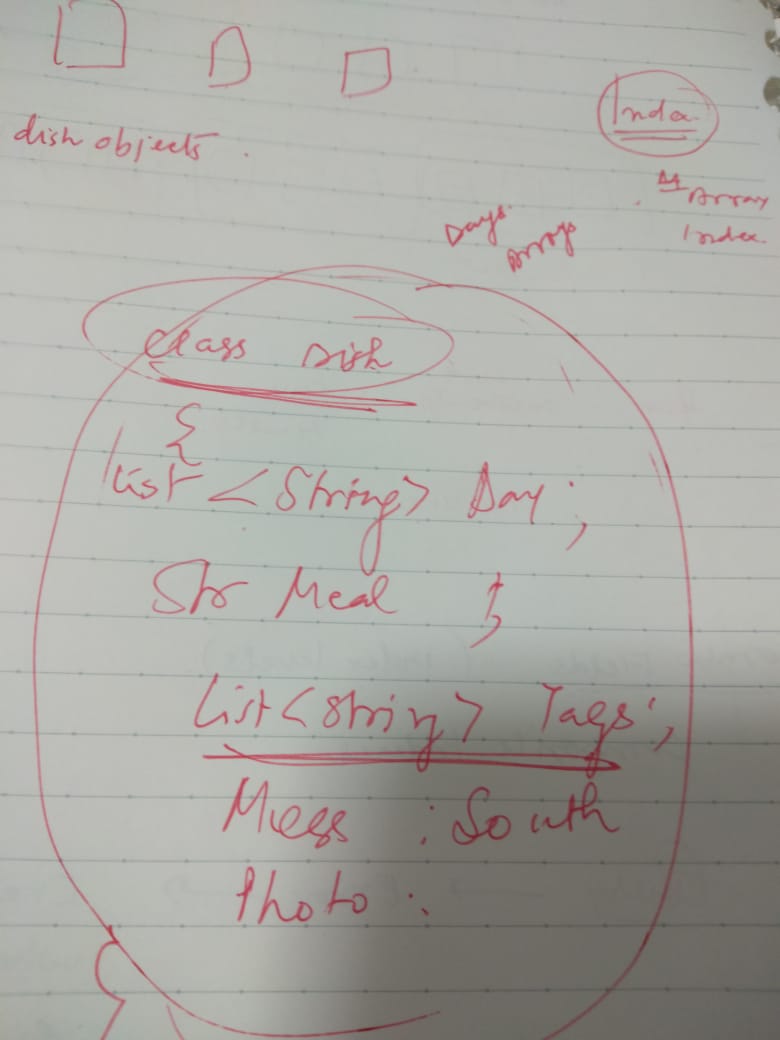 Index
dish objects.
As
Array
Index
Days
Arrays
class Dish
{
List <String> Day;
Str Meal ;
List<String> Tags;
Mess : South
Photo :
}